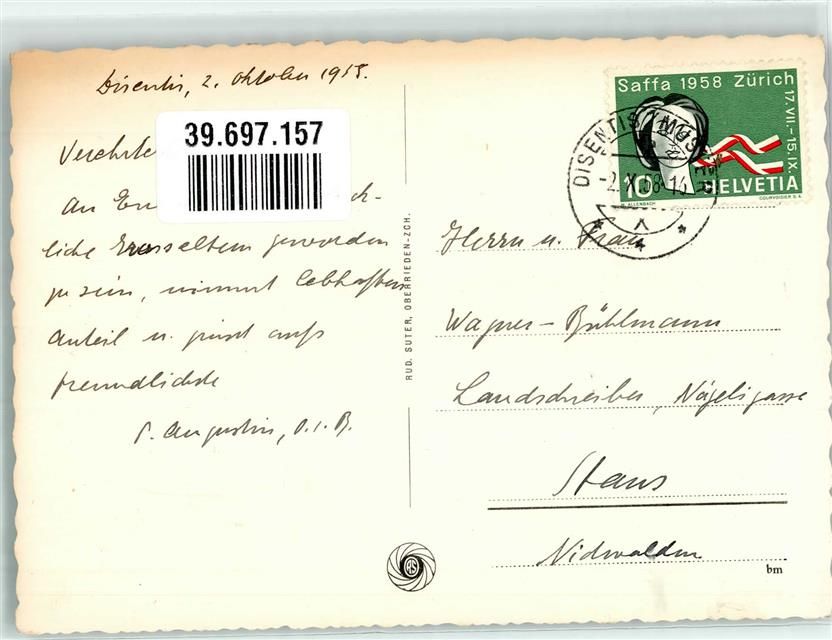 Disentis, 2. Oktober 1958.
39.697.157
Verehrte
An
liche geworden
zu sein, nimmt lebhaften
Anteil u. grüsst aufs
freundlichste
P. Augustin, O.S.B.
RUD. SUTER, OBERRIEDEN-ZCH.
Saffa 1958 Zürich
17.VII.-15.IX.
10 HELVETIA
ALLENBACH COURVOISIER S.A.
DISENTIS / MUSTER
-2.X.58-14
X
Herrn u. Frau
Wagner-Bühlmann
Landschreiber, Nägeligasse
Stans
Nidwalden
RS
bm